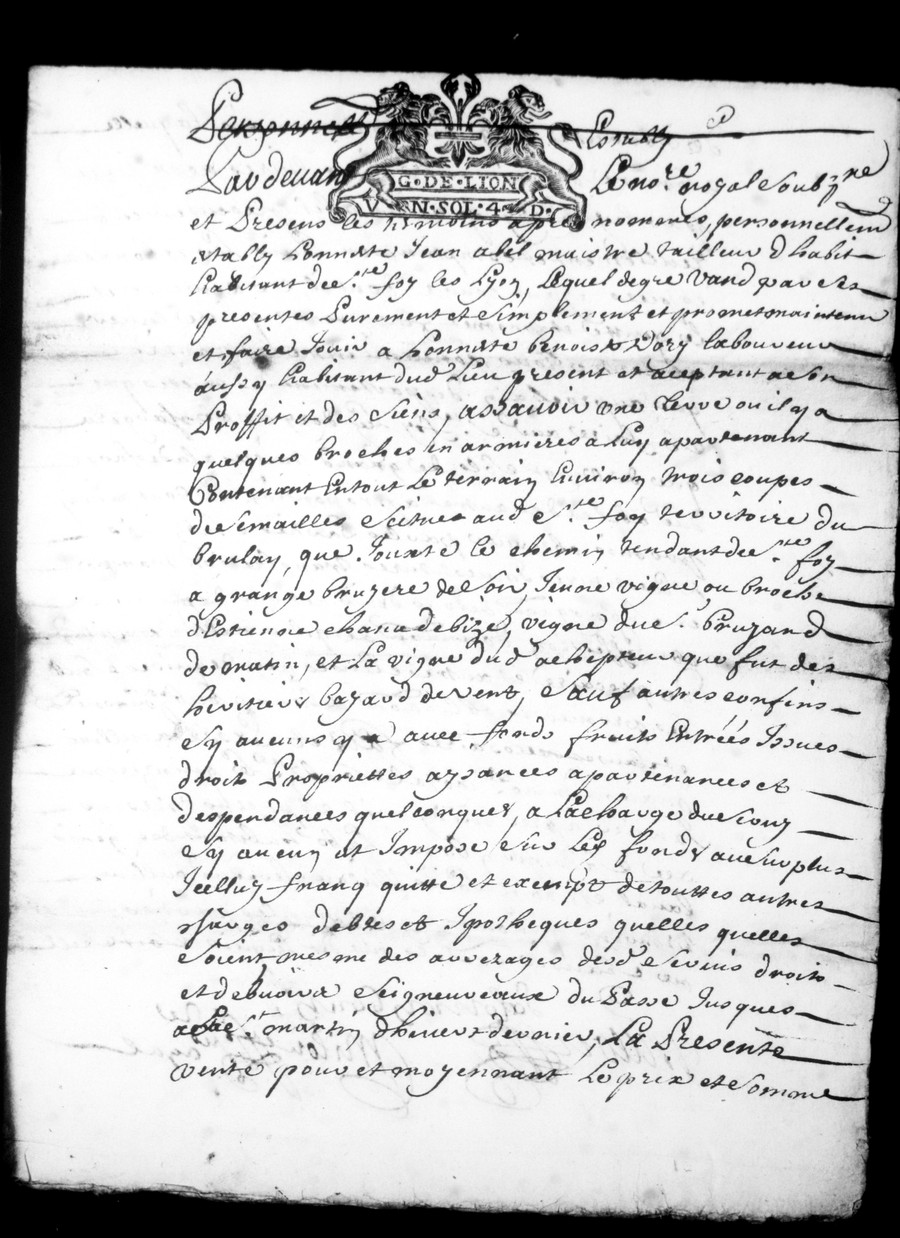 Personnell Establ
G·DE·LION
V N·SOL·4·D·
Pardevant Le no.re royal soubz.ne
et Presens les tesmoins apres nommes, personnellem
estably honneste Jean abel maistre tailleur d habit
habitant de s.te foy les Lyon, Lequel de gre vand par ces
presentes Purement et simplement et promet maintenir
et faire Jouir a honneste benoist Dory laboureur
aussy habitant dud Lieu present et aceptant a son
Proffit et des siens, assauoir une terre ou il y a
quelques broches en armieres a Luy apartenant
Contenant Entout Le terrain Enuiron trois coupes
de semailles scitue aud s.te foy territoire du
brulay, que Jouxte le chemin tendant de s.te foy
a grange bruyere de soir, Jeune vigne ou broche
d Estienne chana de bize, vigne du s.r bruyard
de matin, et La vigne dud achepteur que fut des
heritiers bayard de vent, sauf autres confins
sy aucuns y a avec fonds fruits Entrées Issues
droits Propriettes aysances apartenances et
despendances quelconques, a La charge du seruy
sy aucun est Impose sur Les fonds au surplus
Jcelluy franq quitte et exempt de touttes autres
charges debtes et Ipotheques quelles quelles
soient mesme des arrerages desd seruis droits
et debuoirs seigneureaux du Passe Jusques
a La s.t martin dhiuert dernier, La Presente
vente pour et moyennant Le prix et somme